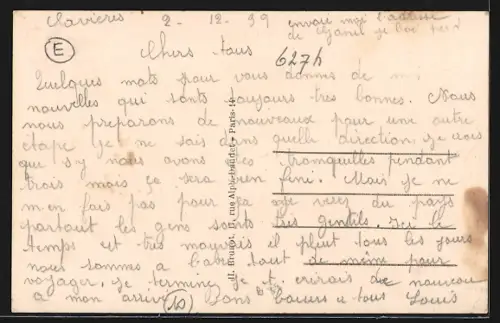 Ravières 2-12-39 envoie moi l'adresse
de je l'ai perd
E
Chers tous 627h
Quelques mots pour vous donner de
nouvelles qui sonts toujours tres bonnes. Nous
nous preparons de nouveaux pour une autre
étape je ne sais dans quelle direction. je crois
que s'y nous avons été tranquilles pendant
trois mais ça sera bien fini. Mais je ne
m'en fais pas pour ça je verez du pays
partout les gens sonts tres gentils. Ici le
temps et tres mauvais il pleut tous les jours
nous sommes a l'abri tout de même pour
voyager. je termine je t'ecrirais de nouveau
a mon arrivé 10 Bons baisers a tous Louis
Ill. Brunot, 11, rue Alph.-Baudet - Paris